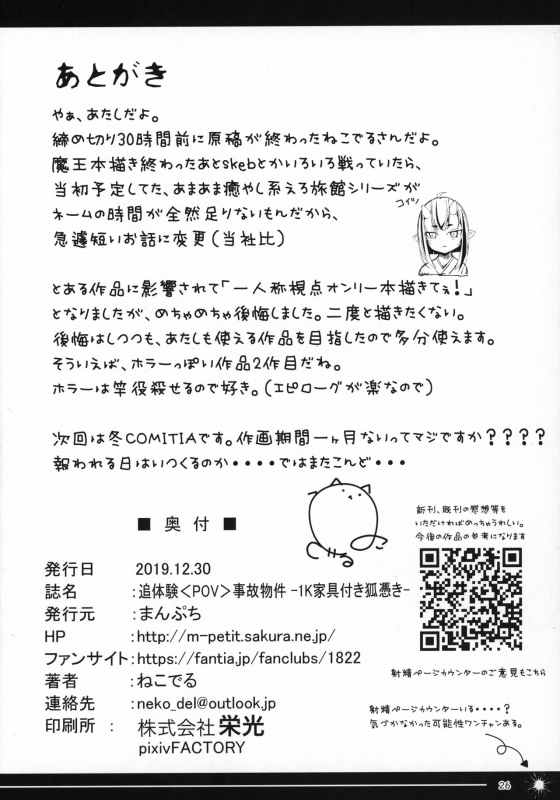 あとがき
やぁ、あたしだよ。
締め切り30時間前に原稿が終わったねこでるさんだよ。
魔王本描き終わったあとskebとかいろいろ戦っていたら、
当初予定してた、あまあま癒やし系える旅館シリーズが
ネームの時間が全然足りないもんだから、
急遽短いお話に変更(当社比)
コイツ
とある作品に影響されて「一人称視点オンリー本描きてぇ!」
となりましたが、めちゃめちゃ後悔しました。二度と描きたくない。
後悔はしつつも、あたしも使える作品を目指したので多分使えます。
そういえば、ホラーっぽい作品2作目だね。
ホラーは竿役殺せるので好き。(エピローグが楽なので)
次回は冬COMITIAです。作画期間一ヶ月ないってマジですか????
報われる日はいつくるのか・・・・ではまたこんど・・・
■ 奥付 ■
発行日 2019.12.30
誌名 :追体験<POV>事故物件 -1K家具付き狐憑き-
発行元 :まんぷち
HP :http://m-petit.sakura.ne.jp/
ファンサイト:https://fantia.jp/fanclubs/1822
著者 :ねこでる
連絡先 :neko_del@outlook.jp
印刷所 : 株式会社 栄光
pixivFACTORY
新刊、既刊の感想等を
いただければめっちゃうれしい。
今後の作品の参考になります
射精ページカウンターのご意見もこちら
射精ページカウンターいる・・・・?
気づかなかった可能性ワンチャンある。
26